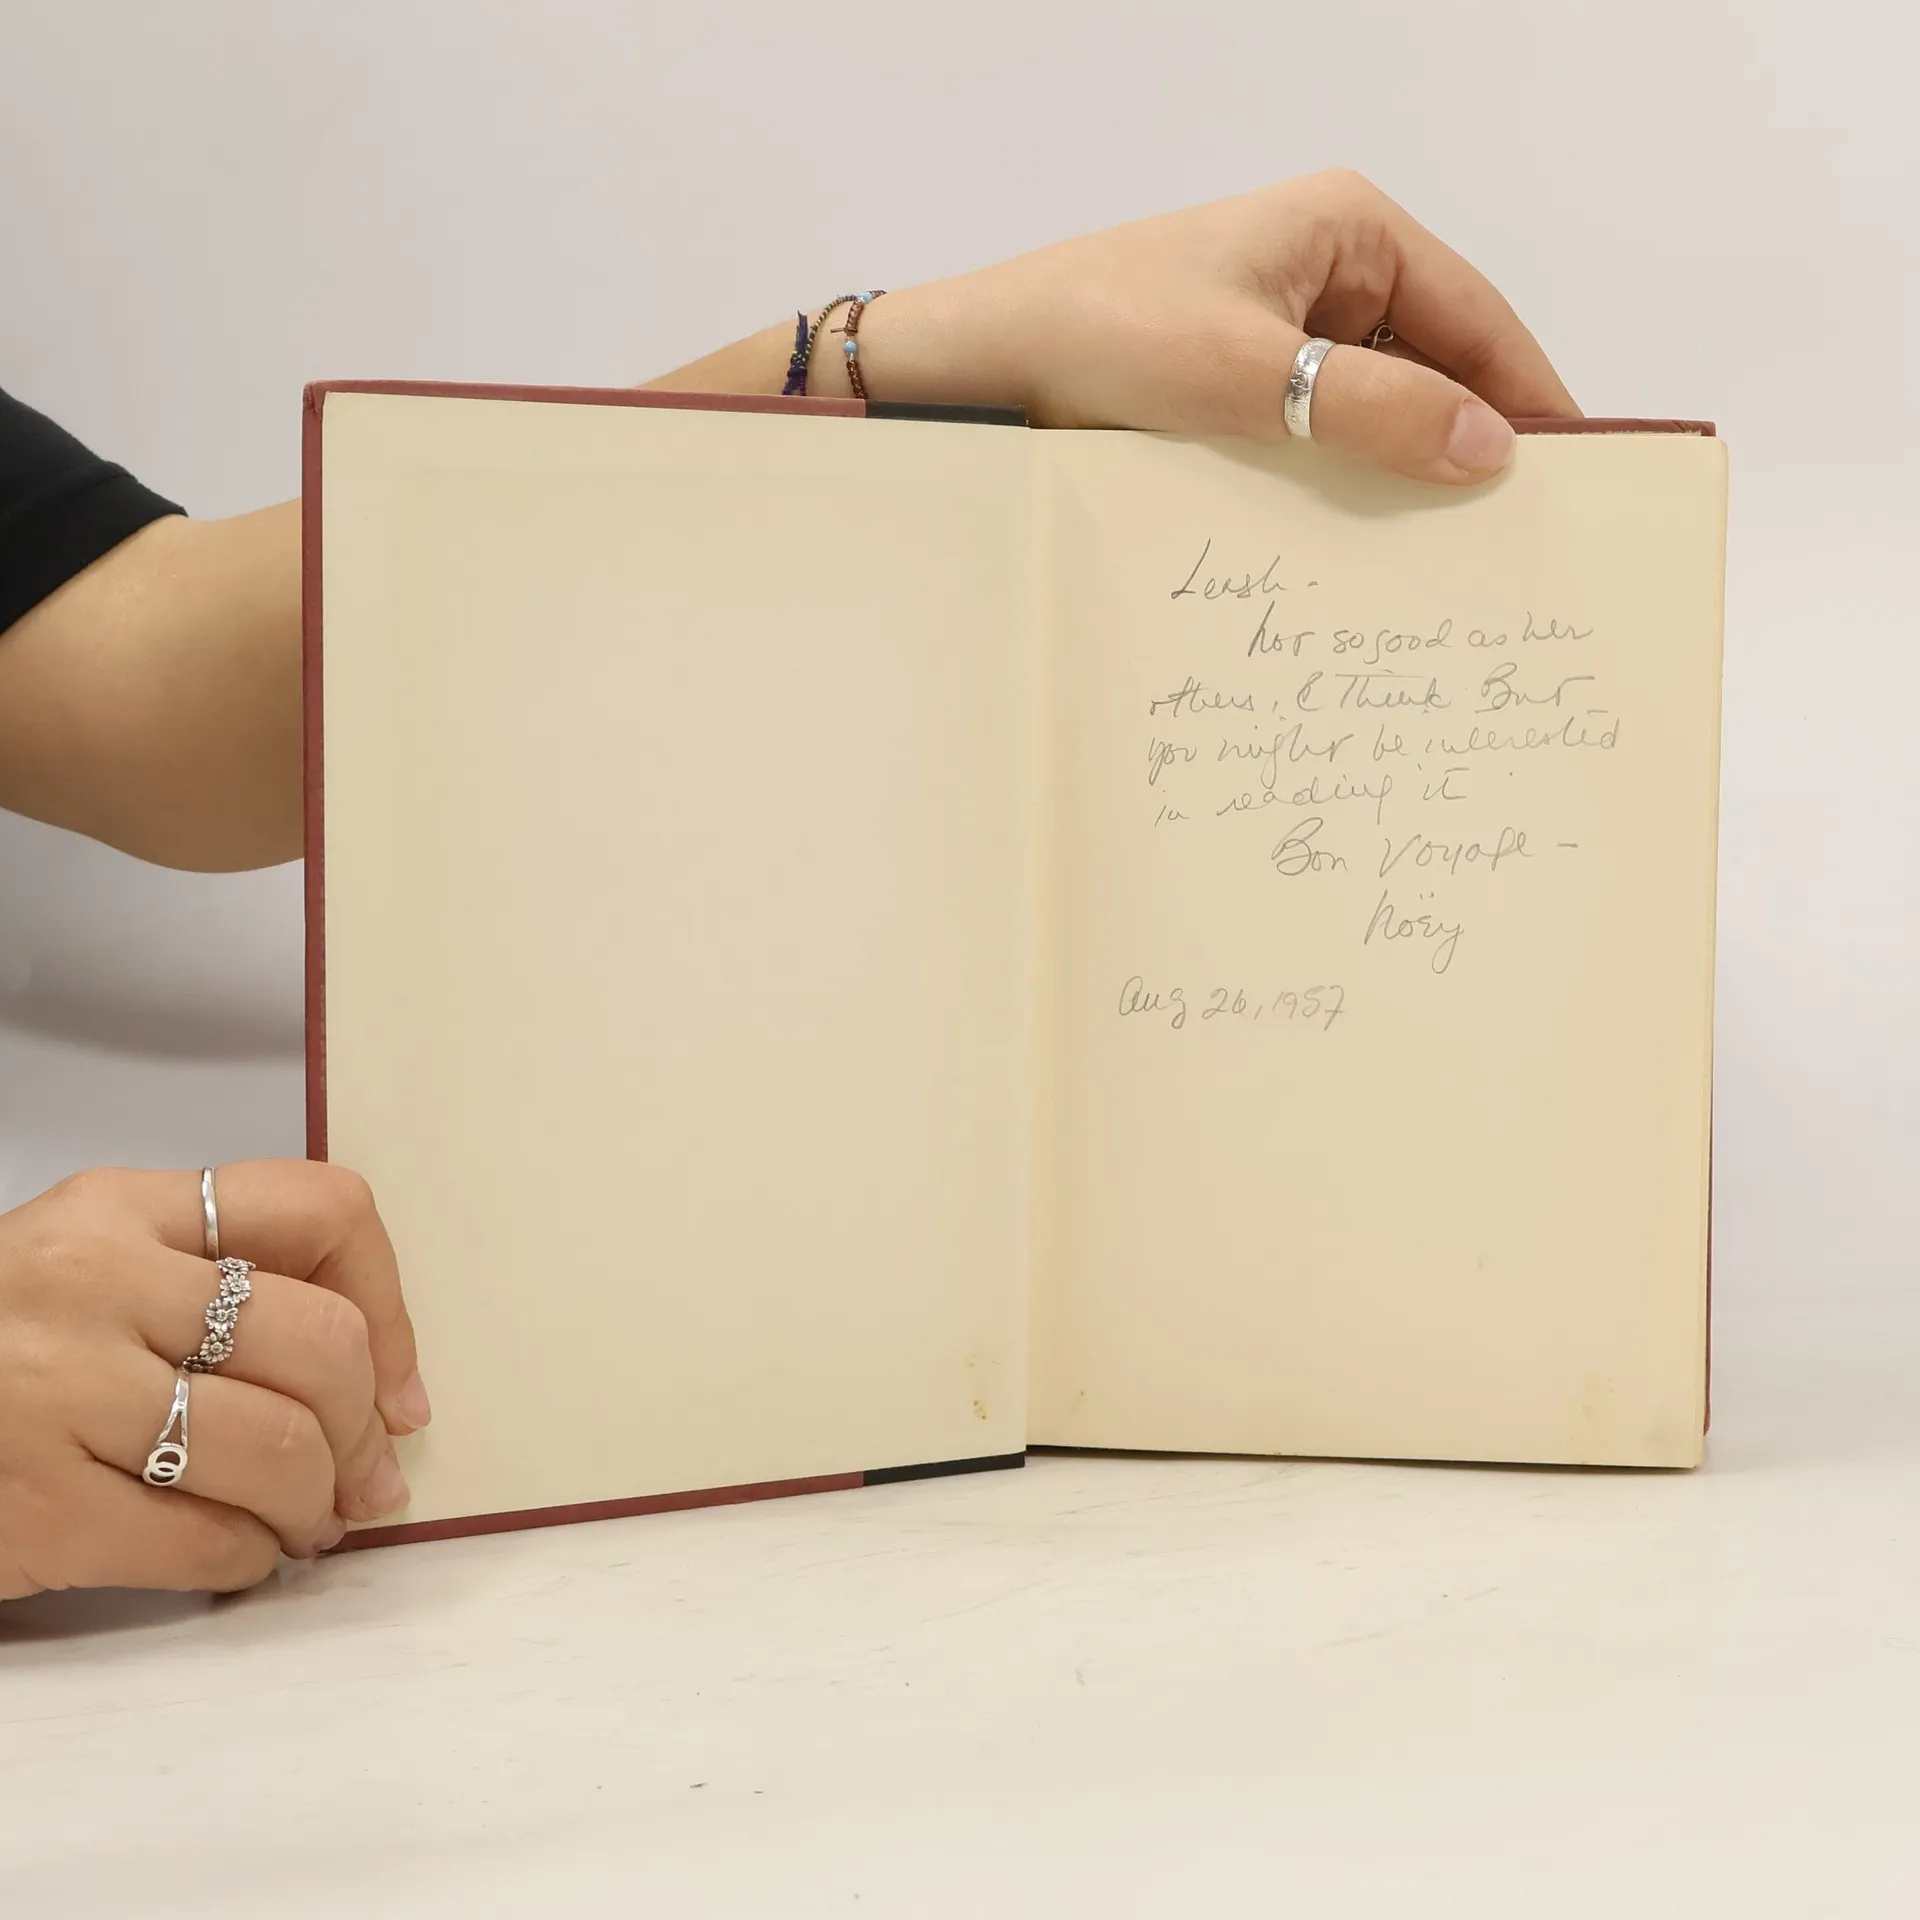 Leash -
Not so good as her
others, I Think But
you might be interested
in reading it
Bon Voyage -
Aug 26, 1957